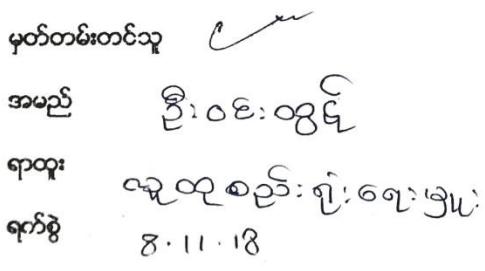 မှတ်တမ်းတင်သူ
အမည် ဦးဝင်းထွဋ်
ရာထူး လူထုစည်းရုံးရေးမှူး
ရက်စွဲ 8.11.18